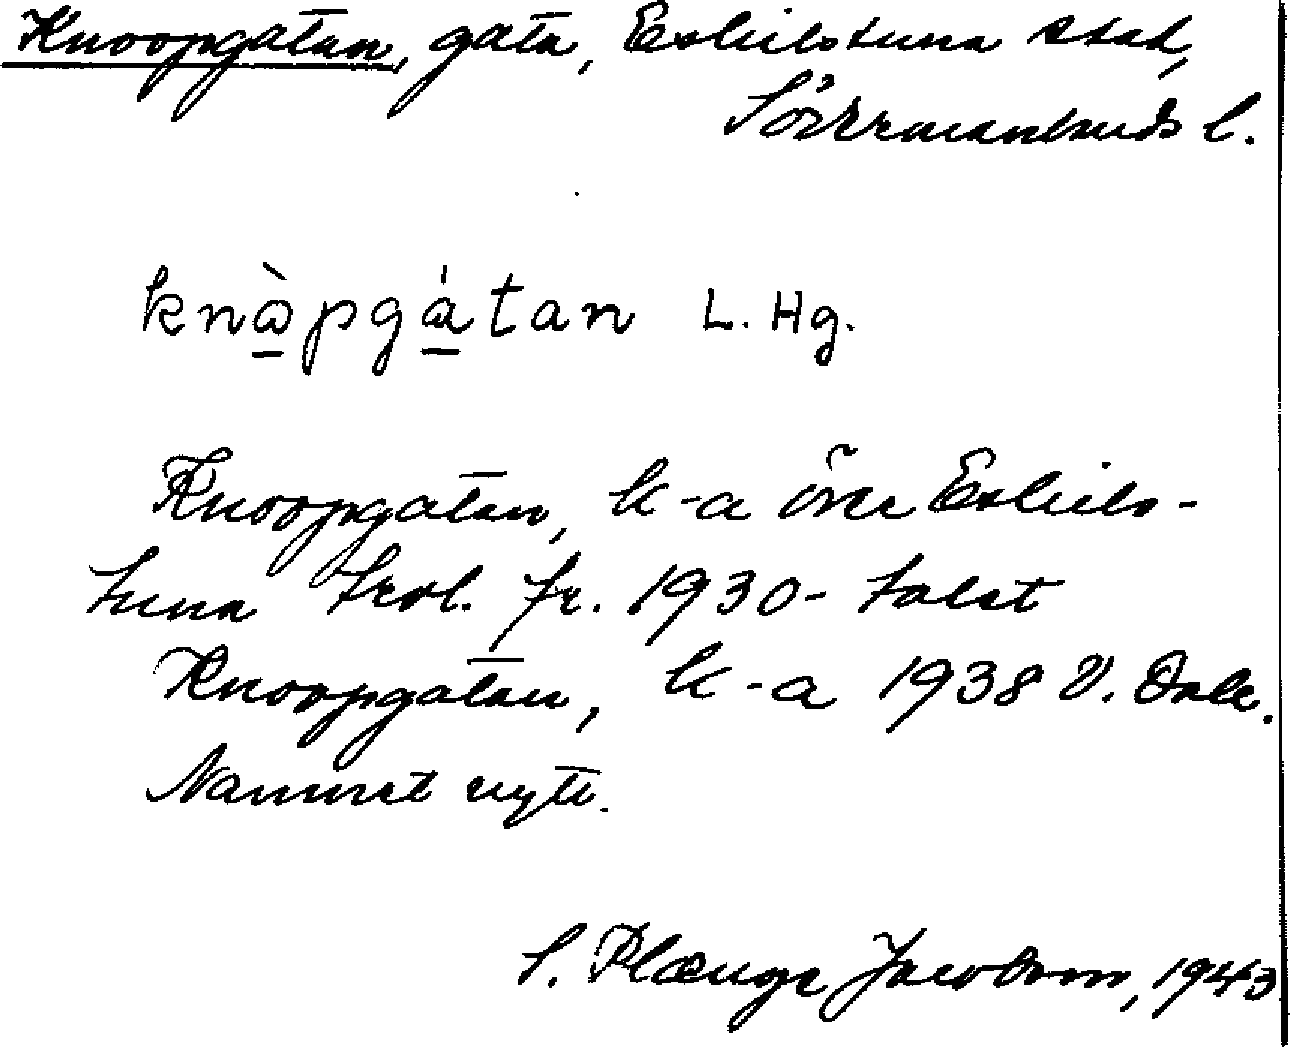 Knoopgatan, gata, Eskilstuna stad,
Södermanlands l.
knàpgátan L. Hg.
Knoopgatan, k-a över Eskils-
tuna trol. fr. 1930-talet
Knoopgatan, k-a 1938 V. Dale.
Namnet nytt.
S. Plænge Jacobson, 1943